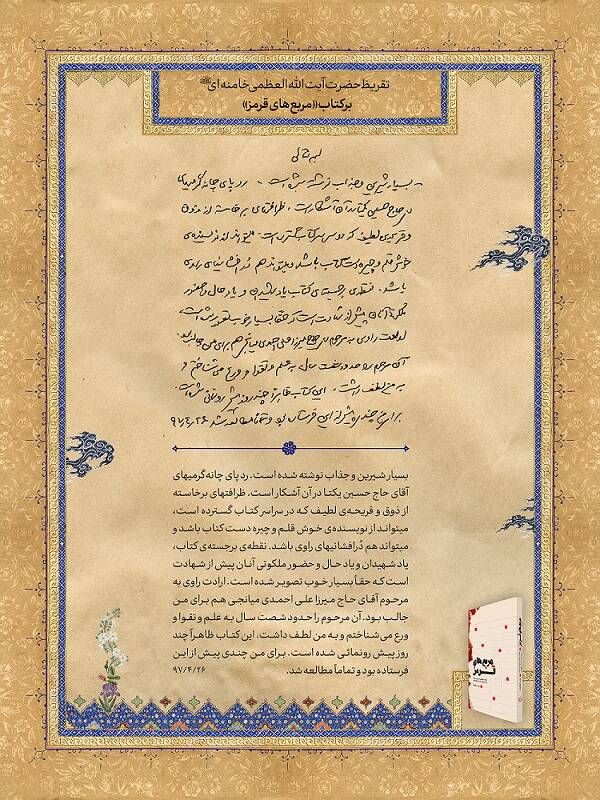 تقریظ حضرت آیت الله العظمی خامنه ای
بر کتاب «مربع های قرمز»
بسمه تعالی
بسیار شیرین و جذاب نوشته شده است. ردپای چانه گرمیهای
آقای حاج حسین یکتا در آن آشکار است، ظرافتهای برخاسته از ذوق
و قریحه‌ی لطیف که در سراسر کتاب گسترده است، میتواند از نویسنده‌ی
خوش قلم و چیره دست کتاب باشد و میتواند هم دُرافشانیهای راوی
باشد. نقطه‌ی برجسته‌ی کتاب یاد شهیدان و یاد حال و حضور
ملکوتی آنان پیش از شهادت است که حقاً بسیار خوب تصویر شده است.
ارادت راوی به مرحوم آقای حاج میرزا علی احمدی میانجی هم برای من جالب بود.
آن مرحوم را حدود شصت سال به علم و تقوا و ورع می شناختم و
به من لطف داشت. این کتاب ظاهراً چند روز پیش رونمائی شده است.
برای من چندی پیش از این فرستاده بود و تماماً مطالعه شد. ۹۷/۴/۲۶
بسیار شیرین و جذاب نوشته شده است. رد پای چانه گرمیهای
آقای حاج حسین یکتا در آن آشکار است، ظرافتهای برخاسته
از ذوق و قریحه‌ی لطیف که در سراسر کتاب گسترده است،
میتواند از نویسنده‌ی خوش قلم و چیره دست کتاب باشد و
میتواند هم دُرافشانیهای راوی باشد. نقطه‌ی برجسته‌ی کتاب،
یاد شهیدان و یاد حال و حضور ملکوتی آنان پیش از شهادت
است که حقاً بسیار خوب تصویر شده است. ارادت راوی به
مرحوم آقای حاج میرزا علی احمدی میانجی هم برای من
جالب بود. آن مرحوم را حدود شصت سال به علم و تقوا و
ورع می شناختم و به من لطف داشت. این کتاب ظاهراً چند
روز پیش رونمائی شده است. برای من چندی پیش از این
فرستاده بود و تماماً مطالعه شد. ۹۷/۴/۲۶
مربع های
قرمز